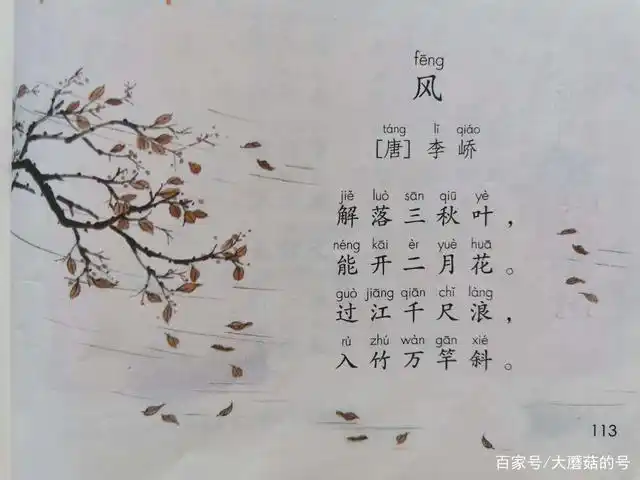 fēng
风
táng lǐ qiáo
[唐] 李峤
jiě luò sān qiū yè
解落三秋叶，
néng kāi èr yuè huā
能开二月花。
guò jiāng qiān chǐ làng
过江千尺浪，
rù zhú wàn gān xié
入竹万竿斜。
113
百家号/大蘑菇的号